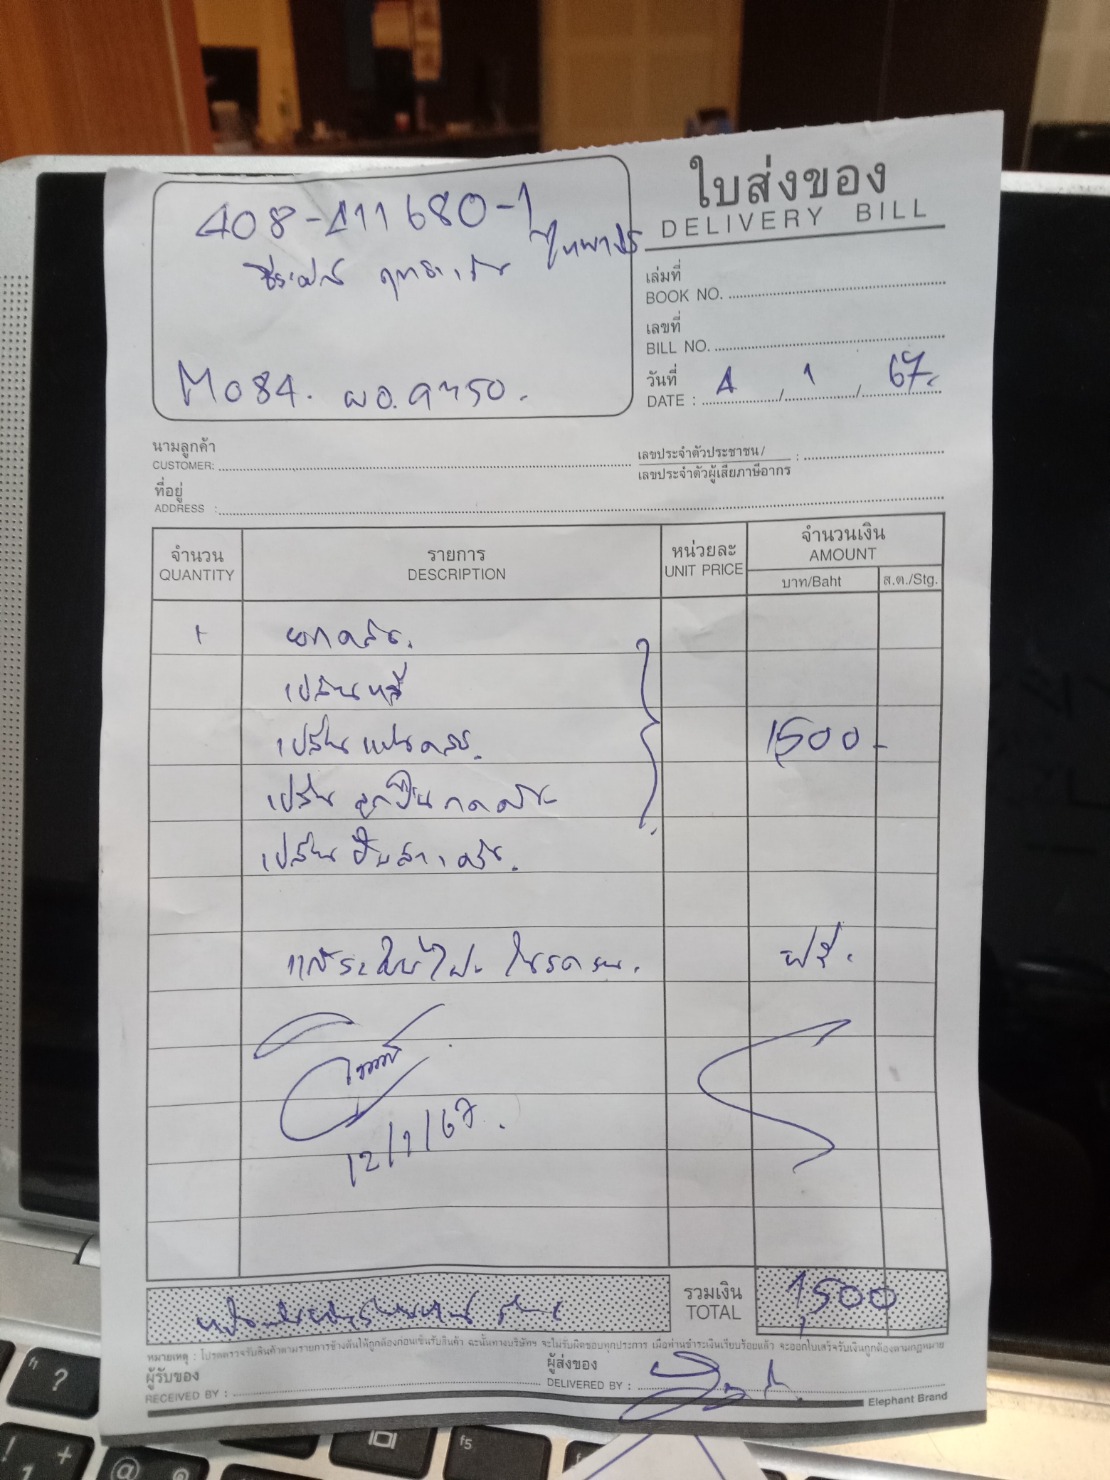 ใบส่งของ
DELIVERY BILL
408-411680-1
ไทยพาณิชย์
เล่มที่
BOOK NO.
เลขที่
BILL NO.
M084.
วันที่ 4 1 67
DATE : / /
นามลูกค้า
CUSTOMER:
เลขประจำตัวประชาชน /
เลขประจำตัวผู้เสียภาษีอากร :
ที่อยู่
ADDRESS :
จำนวน รายการ หน่วยละ จำนวนเงิน
QUANTITY DESCRIPTION UNIT PRICE AMOUNT
บาท/Baht ส.ต./Stg.
1 ยกครัช.
เปลี่ยนหวี
เปลี่ยนแผ่นครัช. 1500-
เปลี่ยน ลูกปืน กดครัช
เปลี่ยน ปั๊มล่าง ครัช.
ฟรี.
12/1/67.
หนึ่งพันห้าร้อยบาทถ้วน รวมเงิน 1,500
TOTAL
หมายเหตุ : โปรดตรวจรับสินค้าตามรายการข้างต้นให้ถูกต้องก่อนเซ็นรับสินค้า ฉะนั้นทางบริษัทฯ จะไม่รับผิดชอบทุกประการ เมื่อท่านชำระเงินเรียบร้อยแล้ว จะออกใบเสร็จรับเงินถูกต้องตามกฎหมาย
ผู้รับของ ผู้ส่งของ
RECEIVED BY : DELIVERED BY :
Elephant Brand
f5